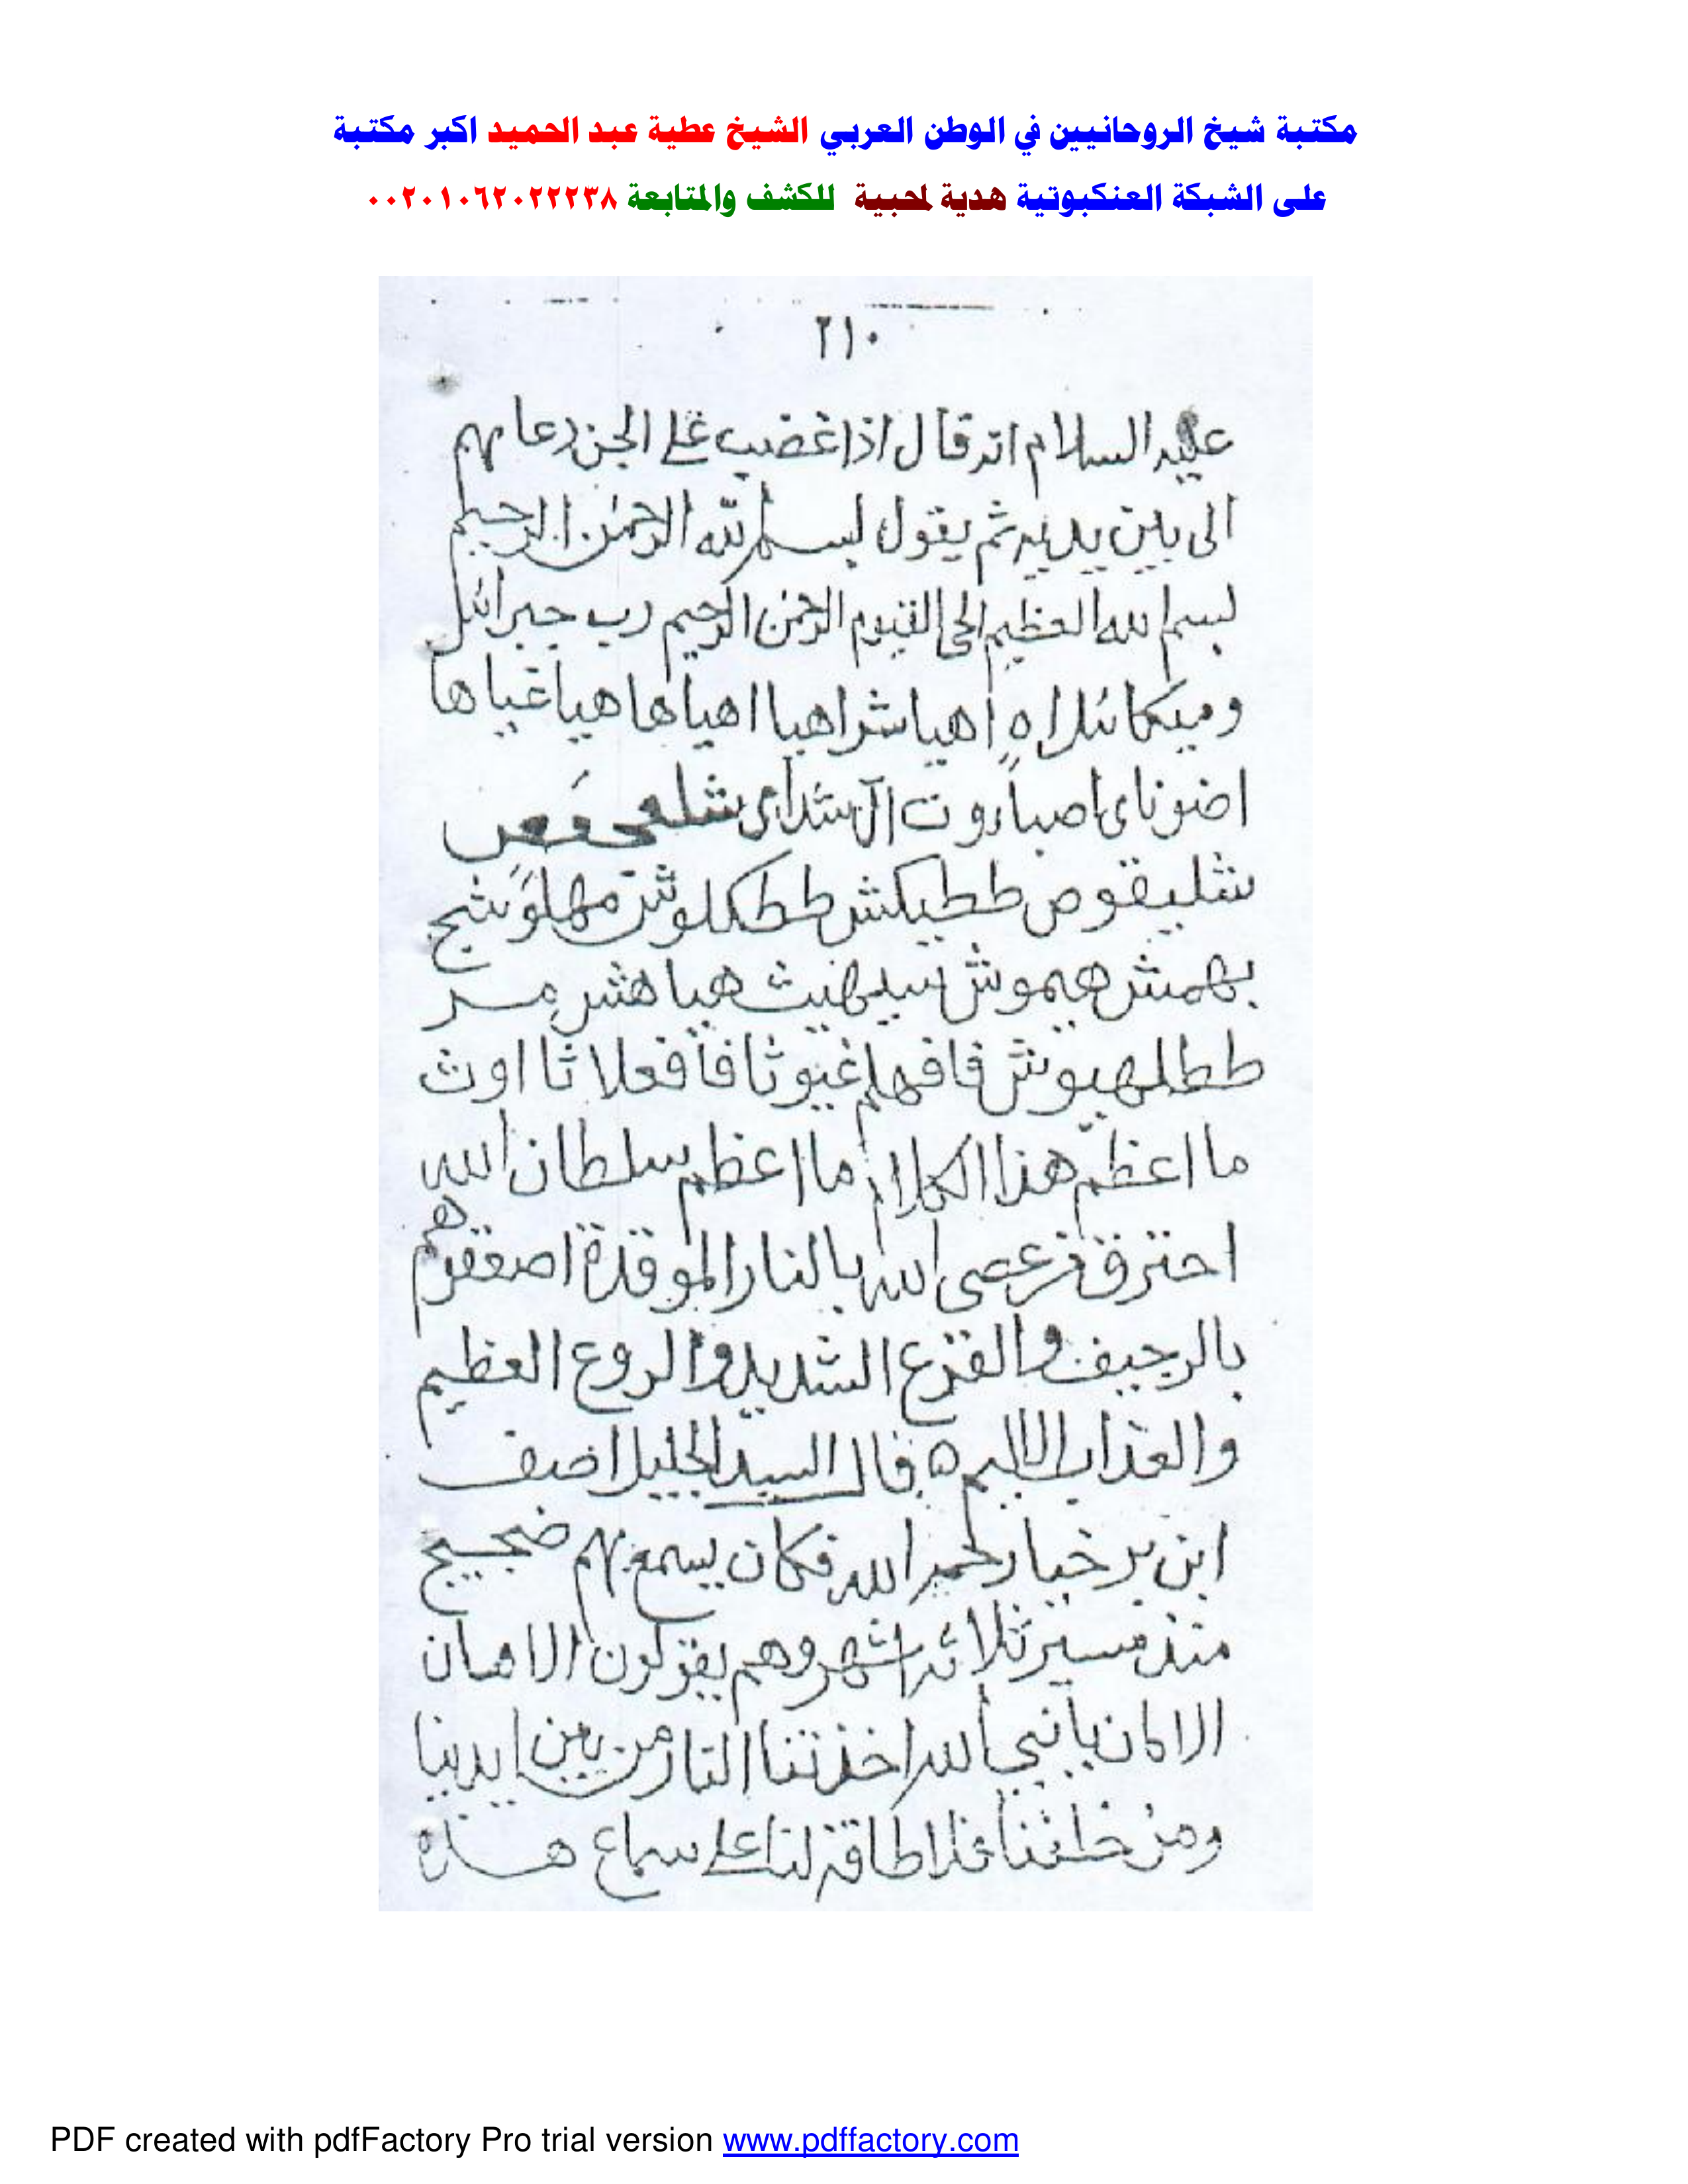 مكتبة شيخ الروحانيين في الوطن العربي الشيخ عطية عبد الحميد اكبر مكتبة
على الشبكة العنكبوتية هدية لمحبية للكشف والمتابعة ٠٠٢٠١٠٦٢٠٢٢٢٣٨
٢١٠
عليه السلام انه قال اذا غضب على الجن دعا بهم
الى بين يديه ثم يقول بسم الله الرحمن الرحيم
بسم الله العظيم الحى القيوم الرحمن الرحيم رب جبرائل
وميكائل اه اهيا شراهيا اهيا ها هيا غيا ها
اضوناى اصباروت ال شداى
شليقوص ططيكش ططكلوش مهلوشج
بهمش هيموش هيا هشر
ططلهيوش فافهم غيوثا فافعلا ثا اوث
ما اعظم هذا الكلام ما اعظم سلطان الله
احترق من عصى الله بالنار الموقدة اصعقوهم
بالرجيف والفزع الشديد والروع العظيم
والعذاب الاليم ه قال السيد الجليل اصف
ابن برخيا رحمه الله فكان يسمع بهم ضجيج
منذ مسير ثلاثه اشهر وهم يقولون الامان
الامان يا نبي الله اخذتنا النار من بين ايدينا
ومن خلفنا فلا طاقة لنا على سماع هذه
PDF created with pdfFactory Pro trial version www.pdffactory.com